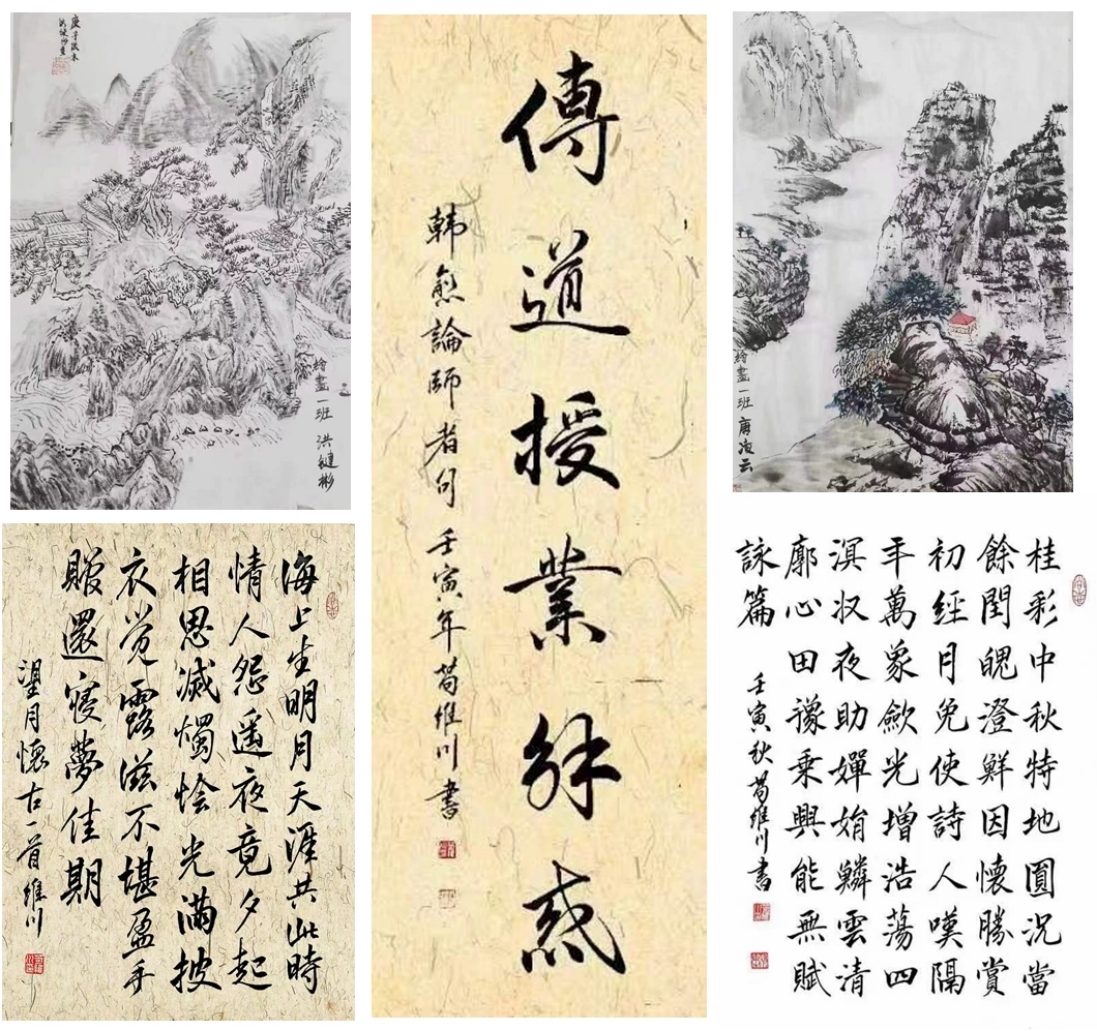 庚子歲末
绘畫一班 洪健彬
傳道授業解惑
韩愈論師者句 壬寅年苟維川書
绘畫一班 唐凌云
海上生明月天涯共此時
情人怨遥夜竟夕起
相思滅燭憐光滿披
衣覺露滋不堪盈手
贈還寝夢佳期
望月懷古一首維川
桂彩中秋特地圓況當
餘閏魄澄鮮因懷勝賞
初經月免使詩人嘆隔
年萬象歛光增浩蕩四
溟收夜助嬋娟鱗雲清
廓心田豫乘興能無賦
詠篇
壬寅秋苟維川書